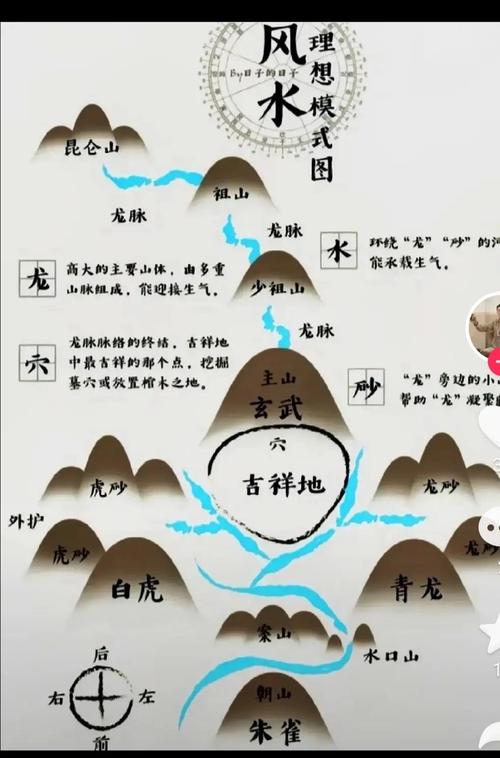 风水
理想模式图
By日子的日子
昆仑山
祖山
龙脉
龙脉
水
环绕“龙”“砂”的河
能承载生气。
龙
高大的主要山体，由多重
山脉组成，能迎接生气。
少祖山
龙脉
穴
龙脉脉络的终结，吉祥地
中最吉祥的那个点，挖掘
墓穴或放置棺木之地。
主山
玄武
砂
“龙”旁边的小
帮助“龙”凝聚
穴
吉祥地
虎砂
龙砂
外护
虎砂
龙砂
白虎
青龙
案山
水口山
后
右
左
前
朝山
朱雀